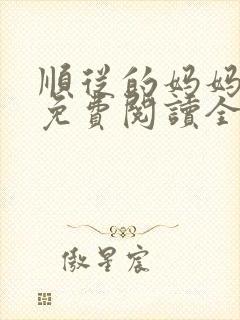 順從的妈妈
免費閱讀全
傲星宸